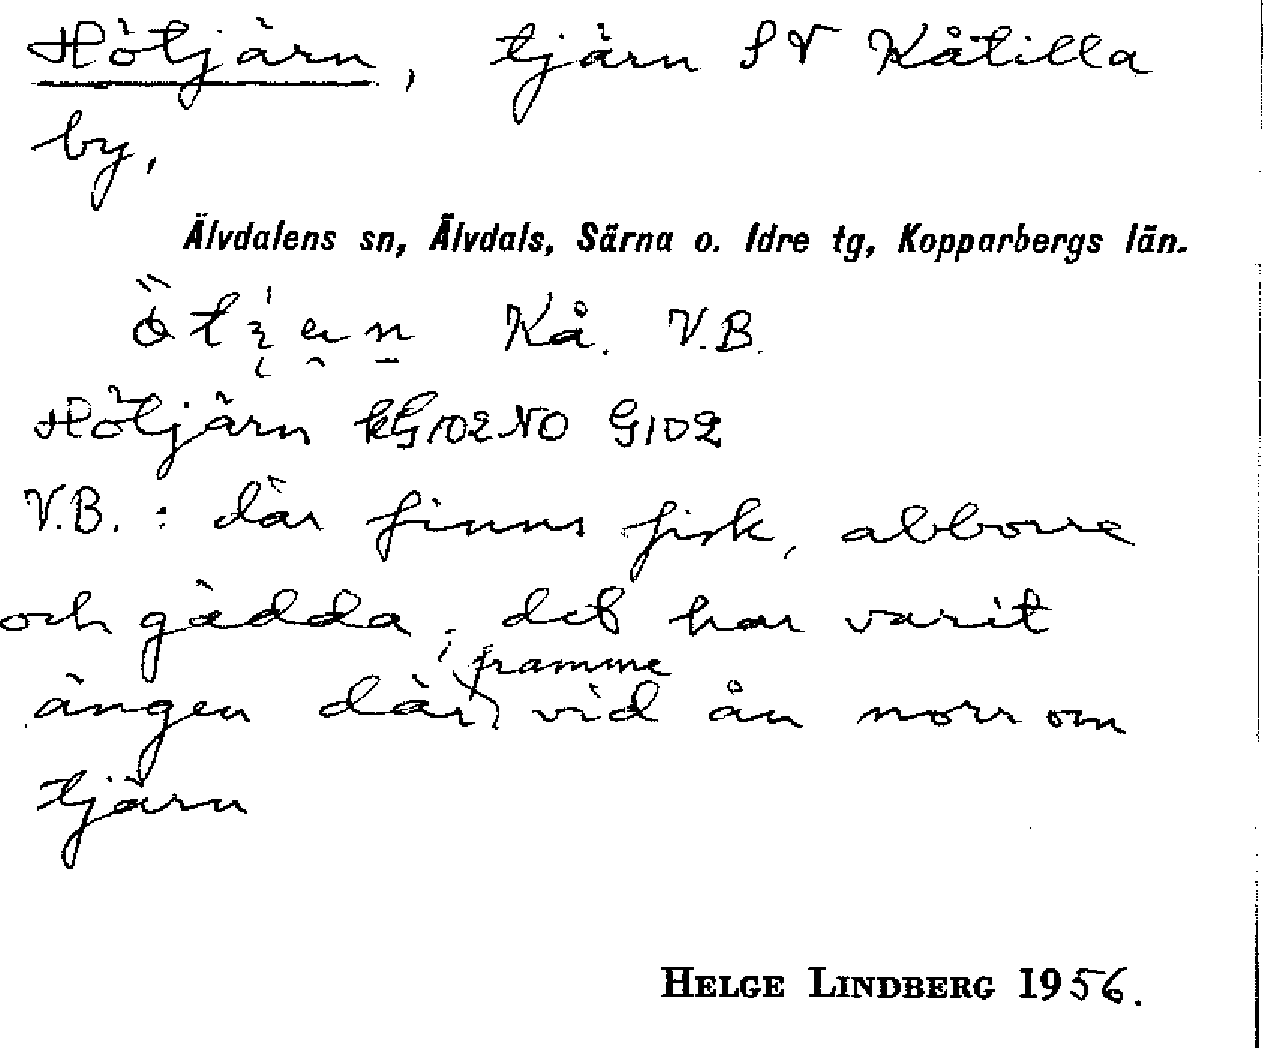 Hötjärn, tjärn SV Kåtilla
by,
Älvdalens sn, Älvdals, Särna o. Idre tg, Kopparbergs län.
Kå. V.B.
Hötjärn kG102NO G102
V.B. : där finns fisk, abborre
och gädda; det har varit
framme
ängen där vid ån norr om
tjärn
HELGE LINDBERG 1956.